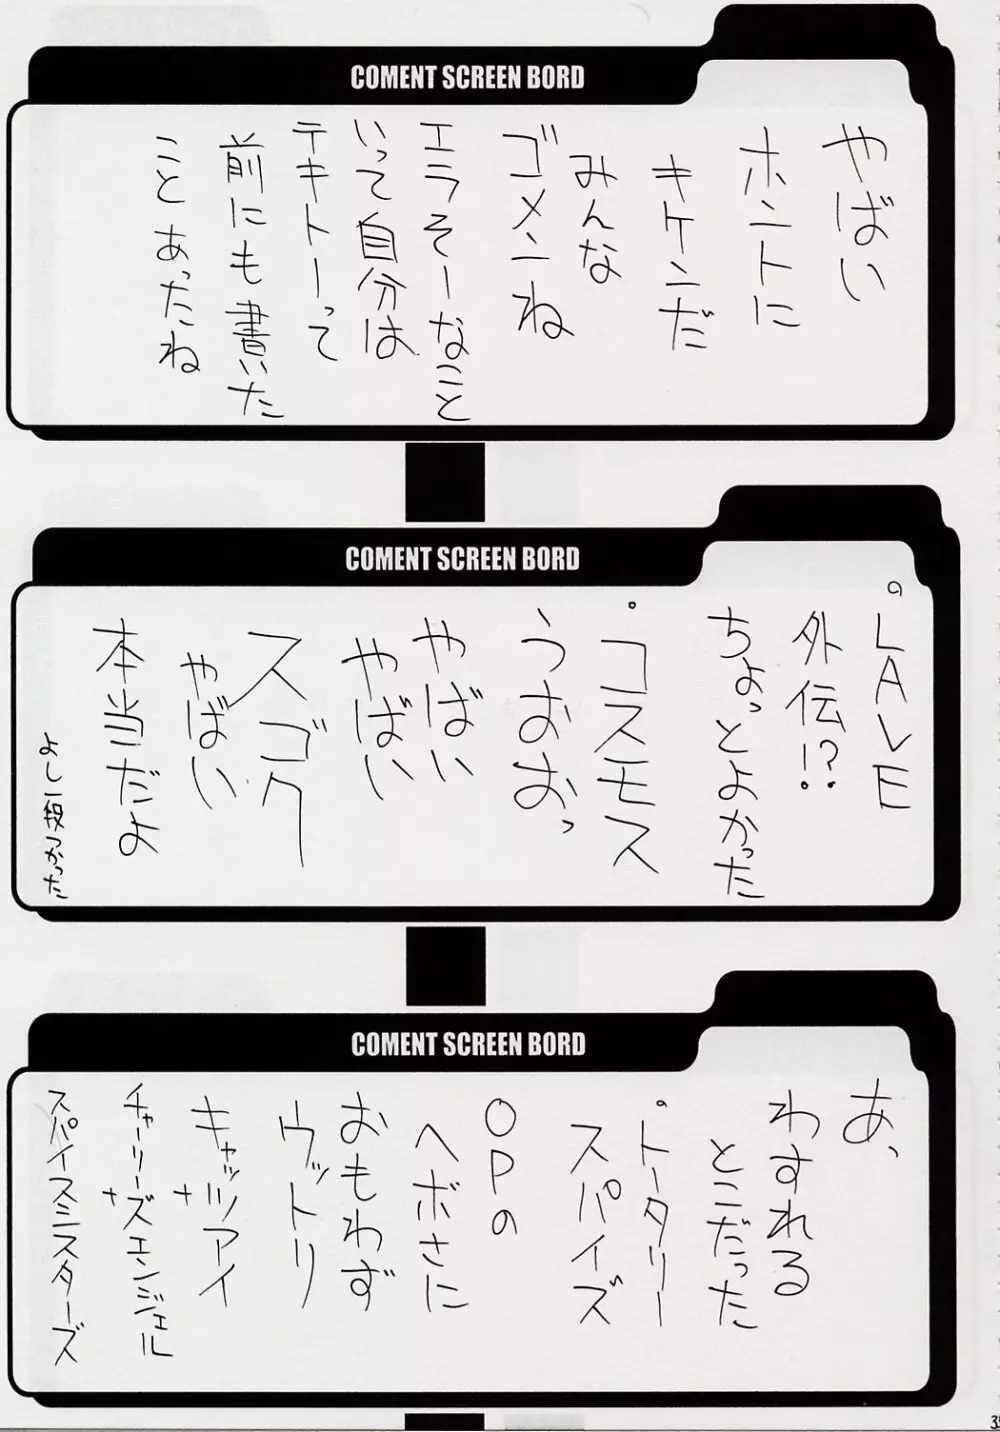 COMENT SCREEN BORD
やばい
ホントに
キケンだ
みんな
ゴメンね
エラそーなこと
いって自分は
テキトーって
前にも書いた
ことあったね
COMENT SCREEN BORD
。LAVE
外伝!?
ちょっとよかった
・コスモス
うおおっ
やばい
やばい
スゴク
やばい
本当だよ
よし一段つかった
COMENT SCREEN BORD
あ、
わすれる
とこだった
・トータリー
スパイズ
OPの
ヘボさに
おもわず
ウットリ
キャッツアイ
+
チャーリーズエンジェル
+
スパイスミスターズ